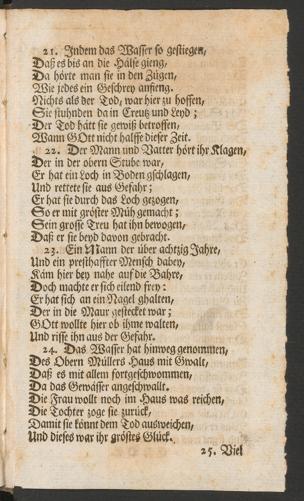 21. Indem das Wasser so gestiegen,
Daß es bis an die Hälse gieng,
Da hörte man sie in den Zügen,
Wie jedes ein Geschrey anfieng.
Nichts als der Tod, war hier zu hoffen,
Sie stuhnden da in Creutz und Leyd;
Der Tod hätt sie gewiß betroffen,
Wann GOtt nicht halffe dieser Zeit.
22. Der Mann und Vatter hört ihr Klagen,
Der in der obern Stube war,
Er hat ein Loch in Boden gschlagen,
Und rettete sie aus Gefahr;
Er hat sie durch das Loch gezogen,
So er mit gröster Müh gemacht;
Sein grosse Treu hat ihn bewogen,
Daß er sie beyd davon gebracht.
23. Ein Mann der über achtzig Jahre,
Und ein presthaffter Mensch dabey,
Käm hier bey nahe auf die Bahre,
Doch machte er sich eilend frey:
Er hat sich an ein Nagel ghalten,
Der in die Maur gestecket war;
GOtt wollte hier ob ihme walten,
Und risse ihn aus der Gefahr.
24. Das Wasser hat hinweg genommen,
Des Obern Müllers Haus mit Gwalt,
Daß es mit allem fortgeschwommen,
Da das Gewässer angeschwallt.
Die Frau wollt noch im Haus was reichen,
Die Tochter zoge sie zurück,
Damit sie könnt dem Tod ausweichen,
Und dieses war ihr gröstes Glück.
25. Viel